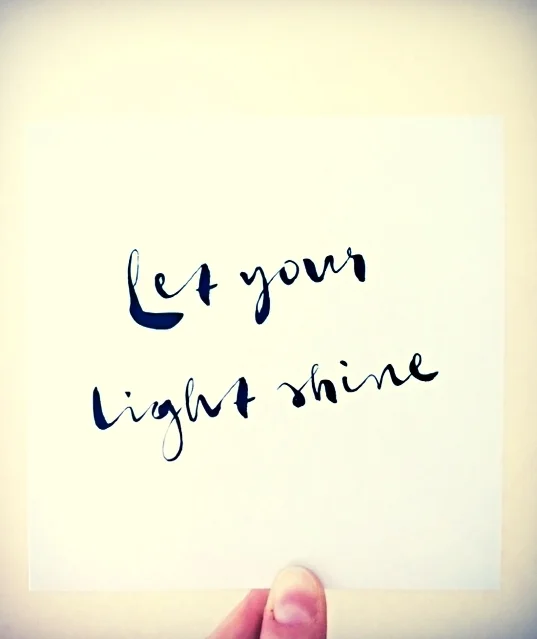 Let your
light shine